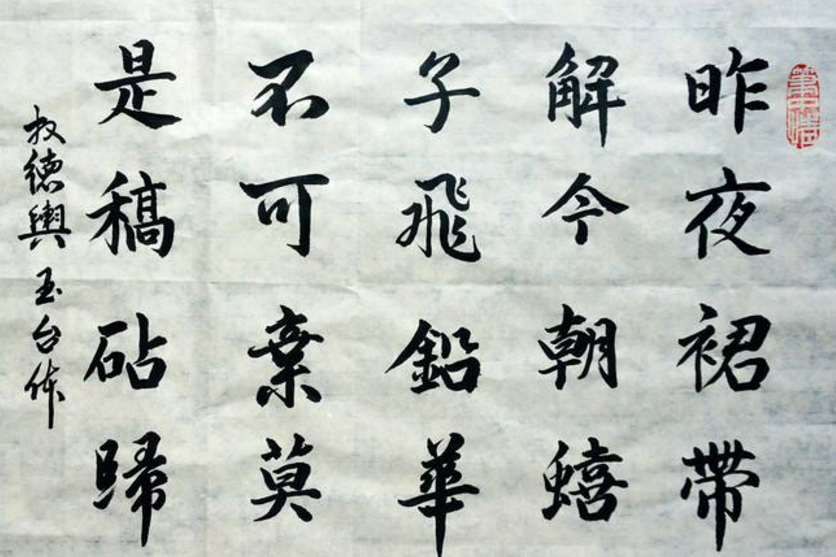 昨夜裙帶
解今朝蟢
子飛鉛華
不可棄莫
是稿砧歸
权德輿玉台体